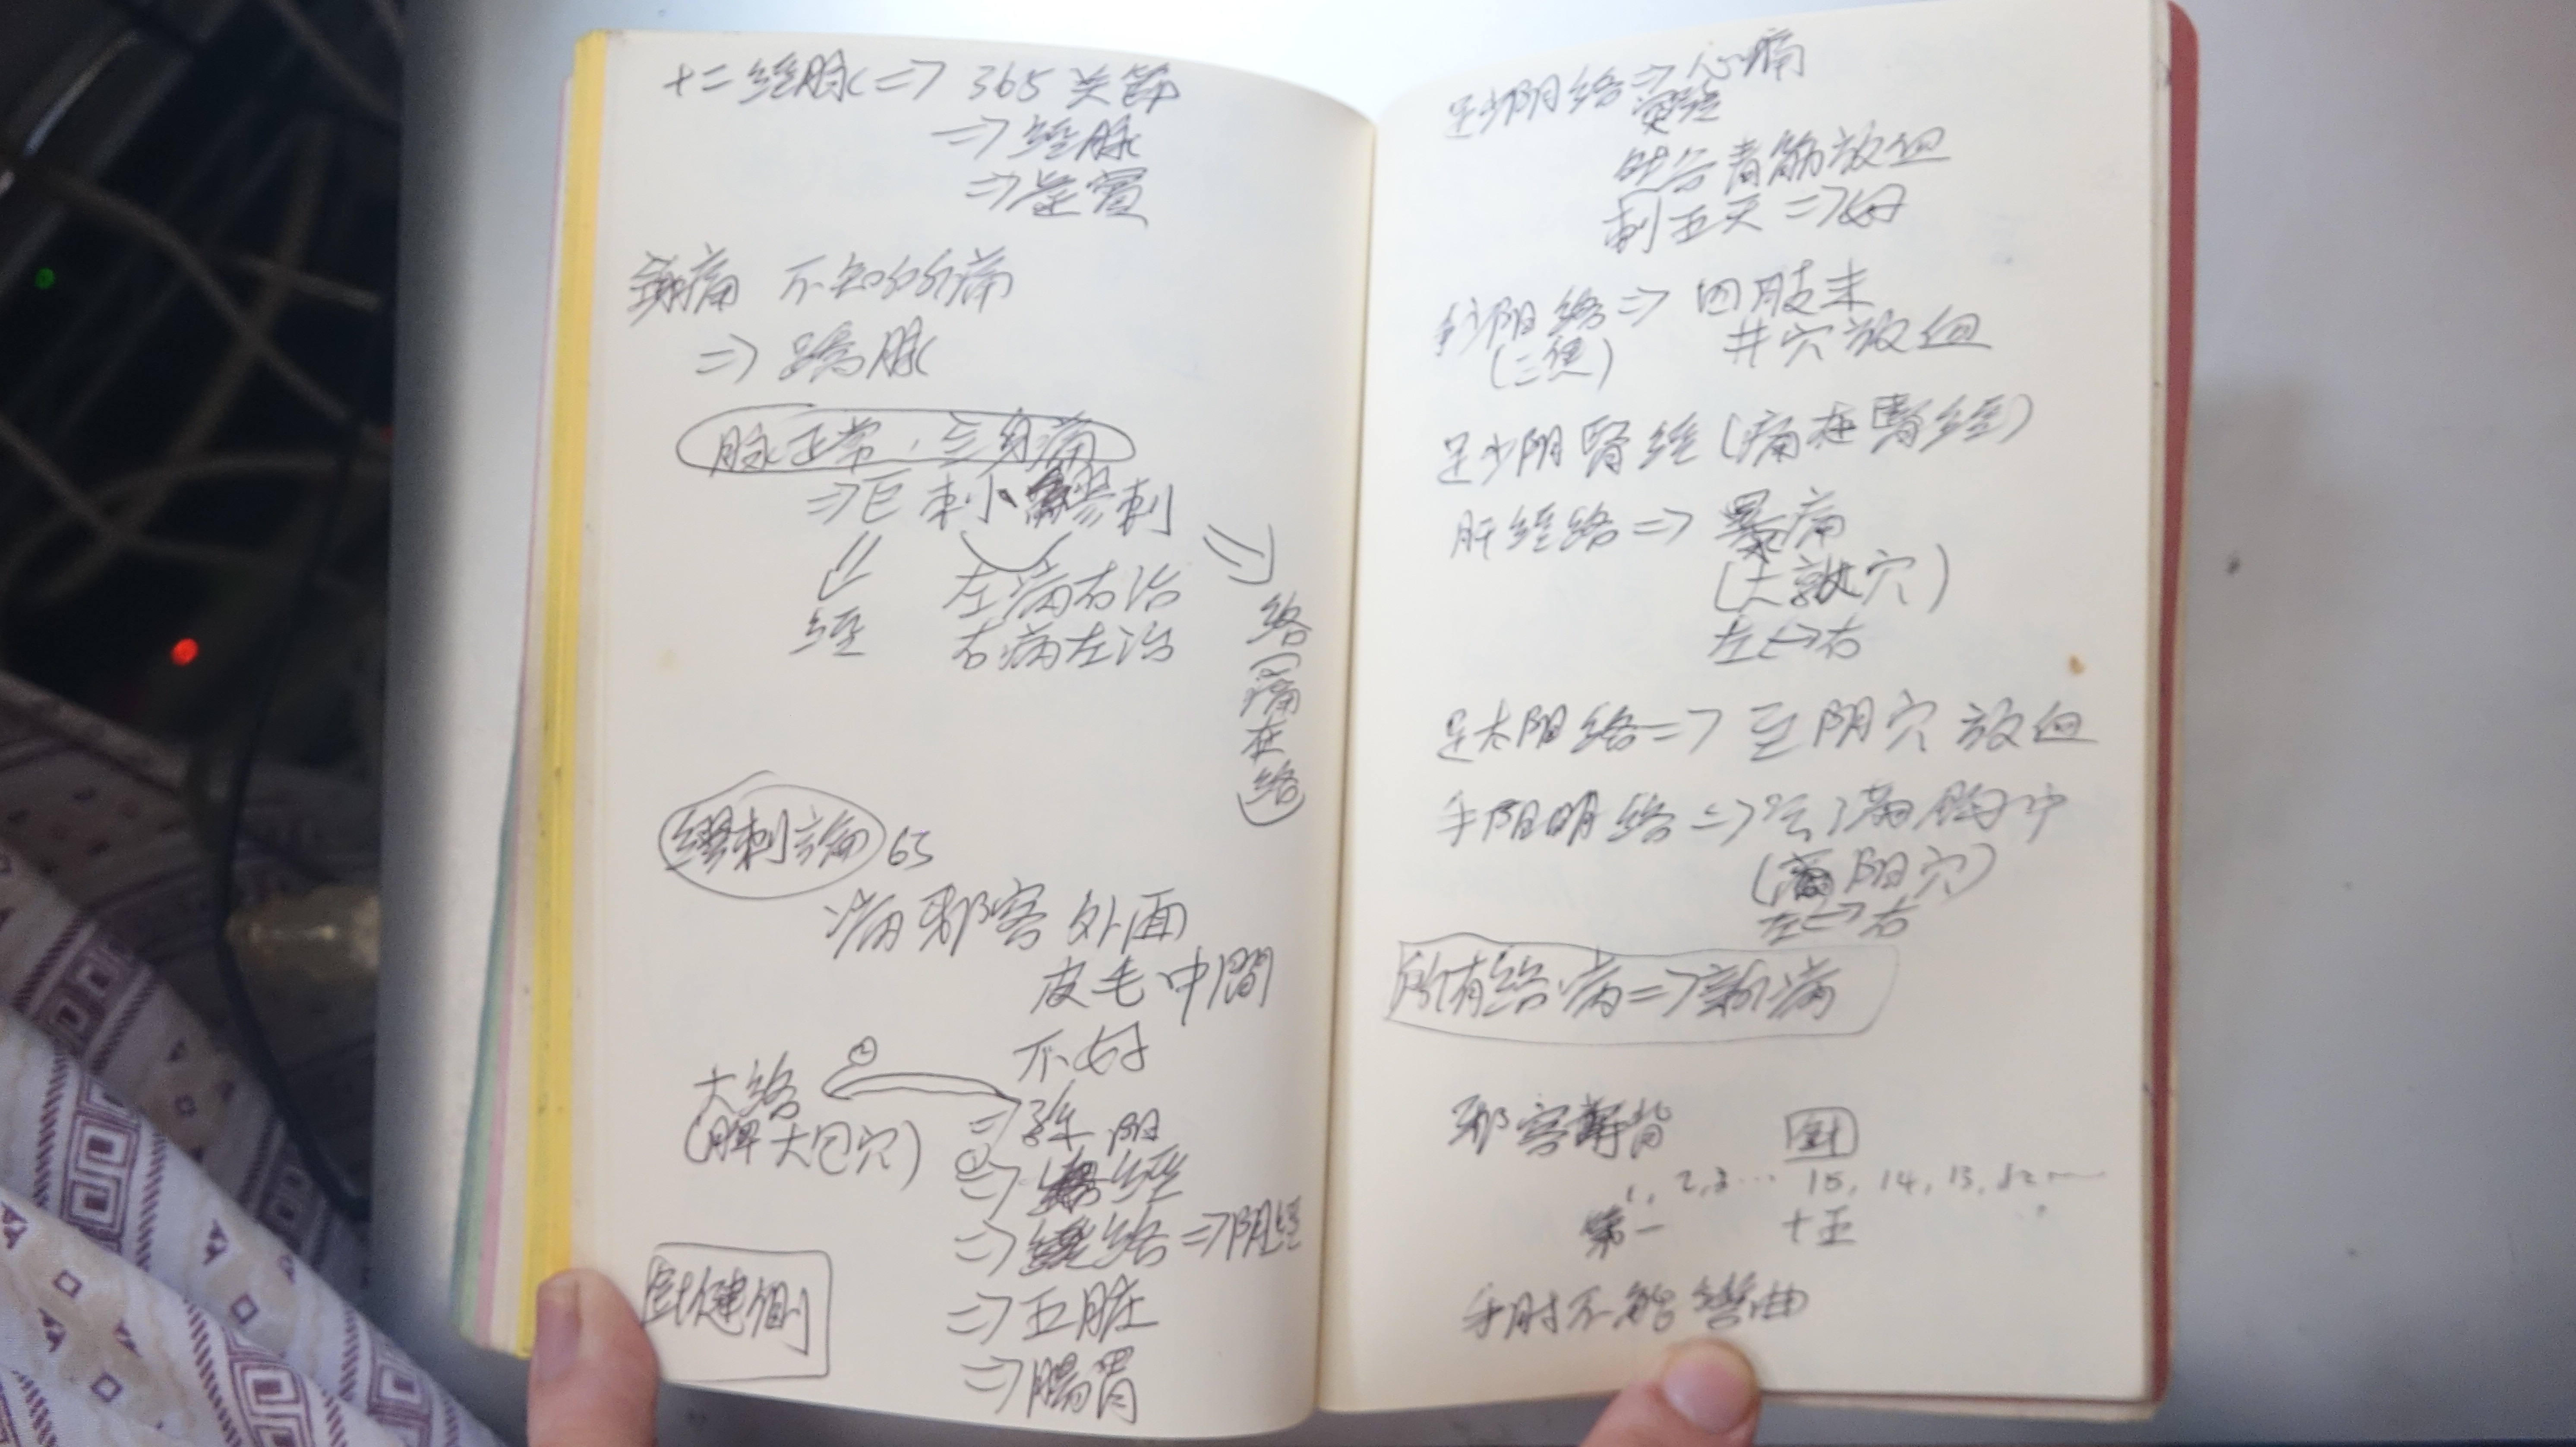 十二經脉 => 365 关節
=> 經脉
=>
頭痛 不知所痛
=> 蹻脉
脉正常, 全身痛
=> 巨刺、繆刺
經
左病右治
右病左治
絡(痛在絡)
繆刺論 63
病邪客 外面
皮毛中間
不好
大絡
(脾大包穴)
=> 孫
=> 經
=> 絡 => 阴經
=> 五脏
=> 腸胃
針健側
足少阴絡 => 心痛
然谷青筋放血
刺五天 => 好
手少阳絡 => 四肢末
井穴放血
足少阴腎經 (痛在腎經)
肝經絡 => 暴痛
(大敦穴)
左 <-> 右
足太阳絡 => 至阴穴 放血
手阳明絡 => 气满胸中
(商阳穴)
左 <-> 右
所有絡病 => 新病
邪客
針
1, 2, 3 ... 15, 14, 13,
第一 十五
手肘不能彎曲